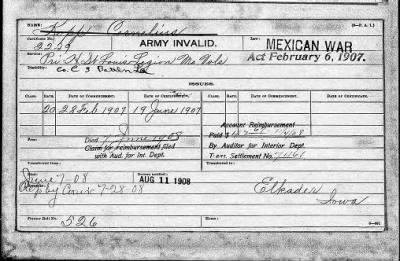 NAME:
Kopp Cornelius
(3—P. A. I.)
Certificate No.
2229
ARMY INVALID.
MEXICAN WAR
Act February 6, 1907.
Pri H St Louis Legion Mo Vols
Disability:
Co. C 3
ISSUES.
CLASS. RATE. DATE OF COMMENCEMENT. DATE OF CERTIFICATE. CLASS. RATE. DATE OF COMMENCEMENT. DATE OF CERTIFICATE.
20 28 Feb 1907 19 June 1907
Died June 1908
Account Reimbursement
Claim for reimbursement filed
with Aud. for Int. Dept.
By Auditor for Interior Dept.
Settlement No.
Transferred to
Transferred from
June 7-08
AUG 11 1908
7-28-08
Elkader
Iowa
Former Roll No.
526